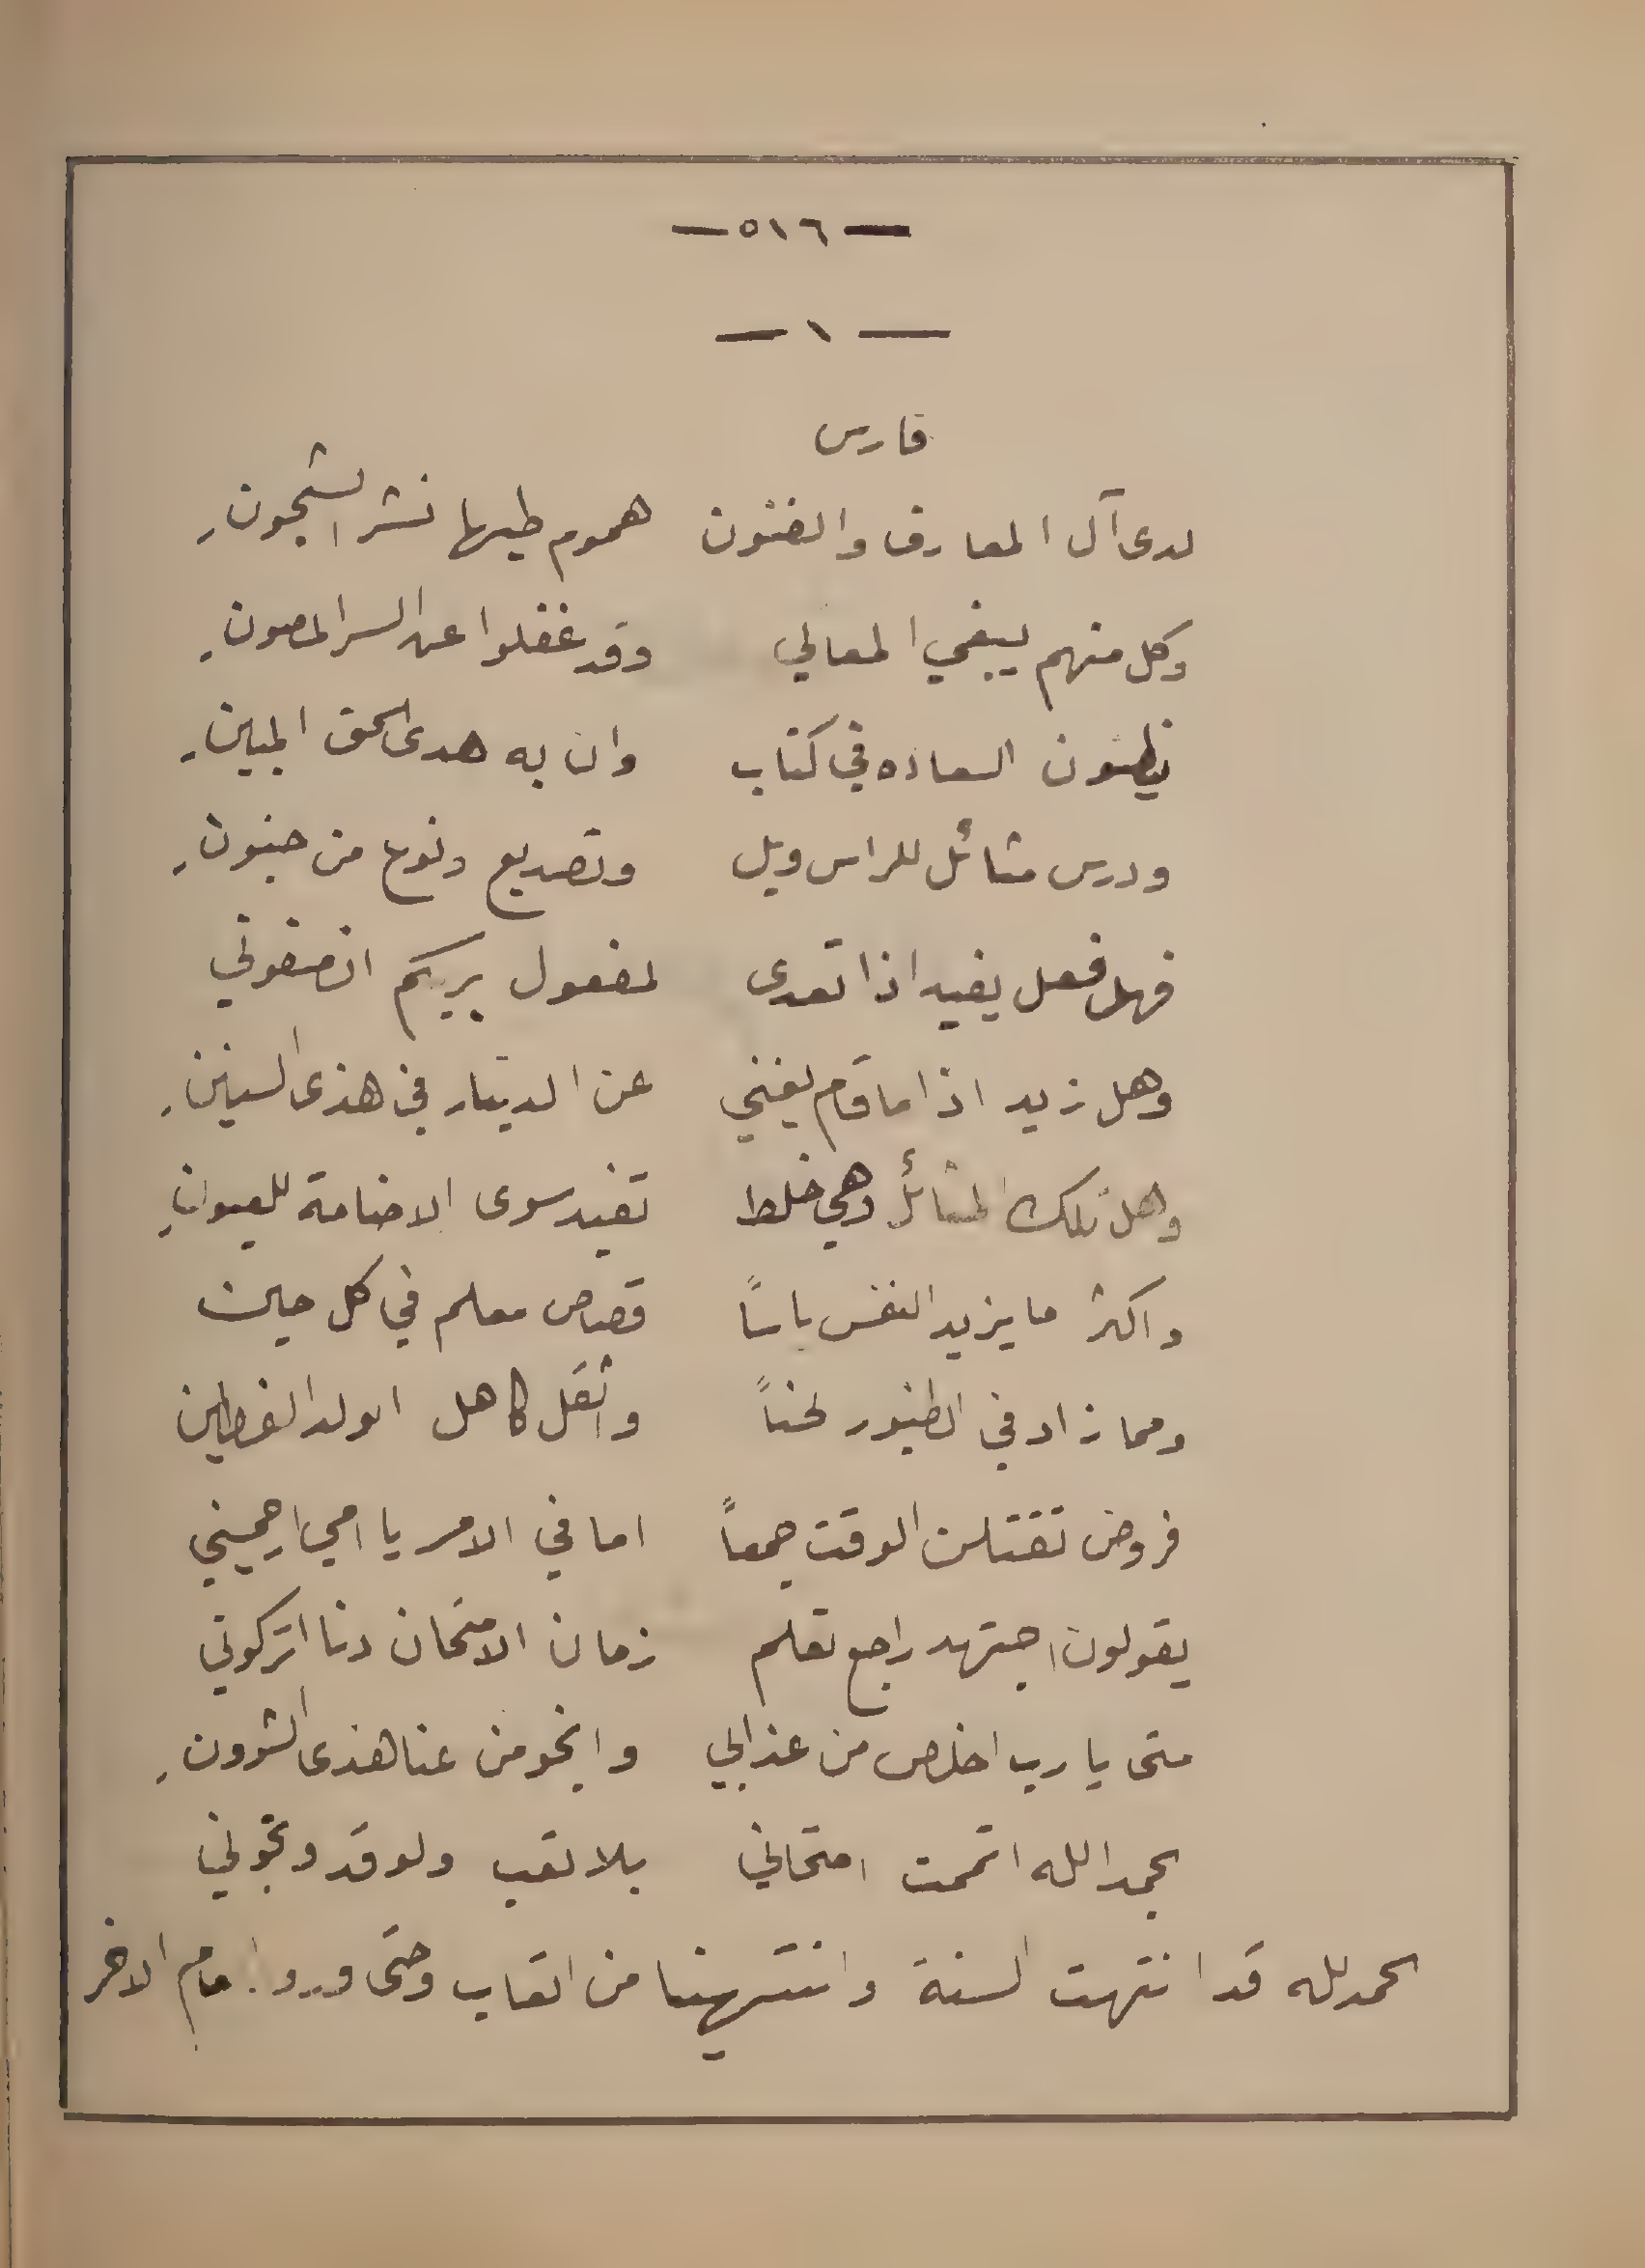 — ٥١٦ —
— ١ —
فارس
لدى آل المعارف والفنون هموم طيها نشر الشجون
وكل منهم يبغي المعالي وقد غفلوا عن السر المصون
يظنون السعاده في كتاب وان به هدى الحق المبين
ودرس مشائل للراس ويل وتصديع ونوع من جنون
فهل فعل يفيد اذا تعدى لمفعول بربكم انصفوني
وهل زيد اذا ما قام يغني عن الدينار في هذى السنين
وهل تلك المشائل وهي خلط تفيد سوى الاضامة للعيون
واكثر ما يزيد النفس باسًا قصاص معلم في كل حين
ومما زاد في الطنبور لحناً واثقل كاهل الولد الفطين
فروض تقتلن الوقت جمعاً اما في الامر يا امي ارحميني
يقولون اجتهد راجع تعلم زمان الامتحان دنا اتركوني
متى يا رب اخلص من عذابي وانجو من عنا هذى الشوون
بحمد الله اتممت امتحاني بلا تعب ولو قد وبخوني
الحمد لله قد انتهت السنة وانتهينا من اتعاب وحتى امام الاخر